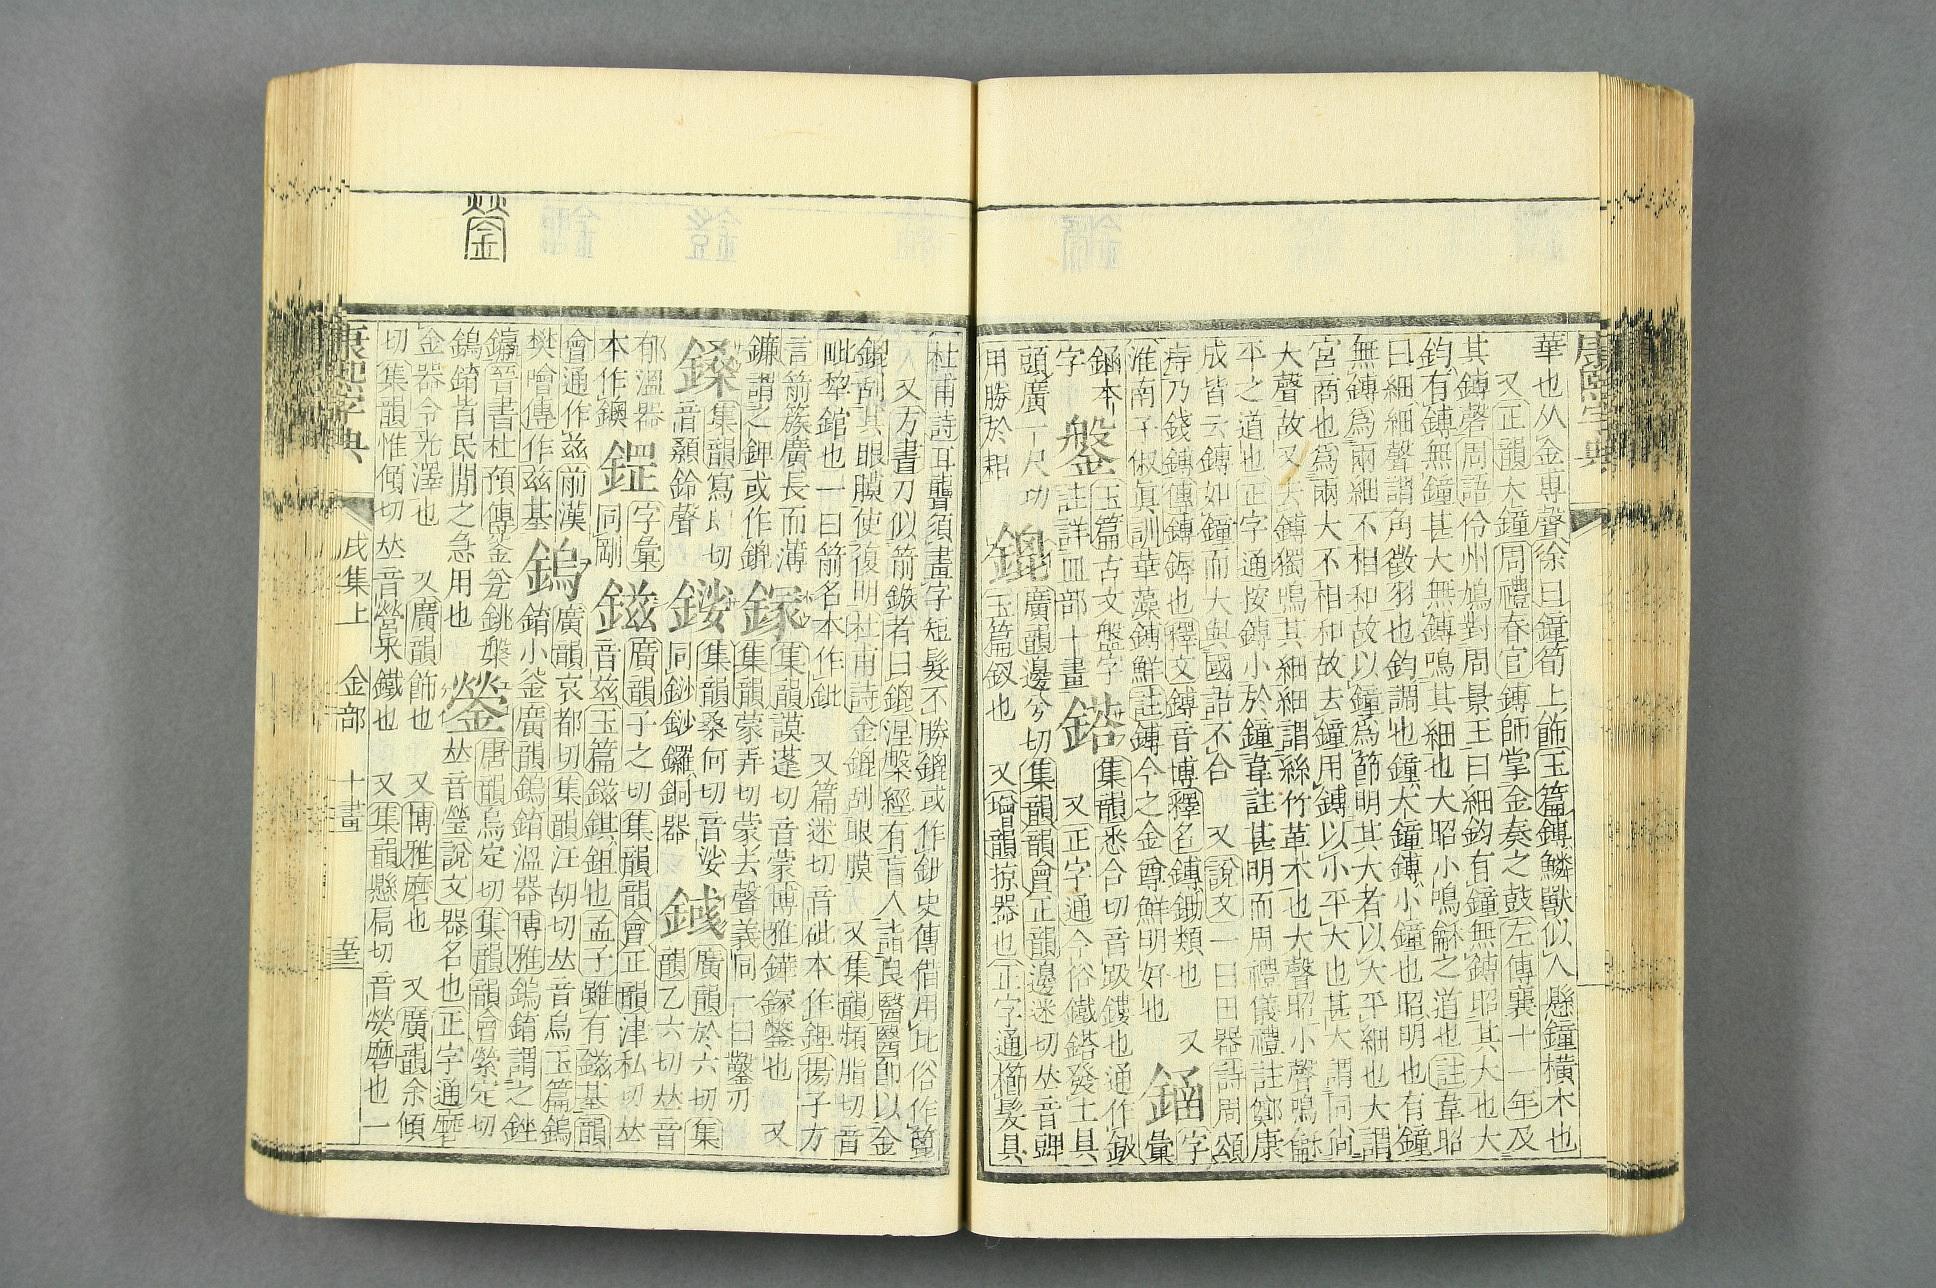 康熙字典
華也从金尃聲徐曰鐘筍上飾玉篇鏄鱗獸似人懸鐘橫木也
又正韻大鐘周禮春官鏄師掌金奏之鼓左傳襄十一年及
其鏄磬周語伶州鳩對周景王曰細鈞有鐘無鏄昭其大也大
鈞有鏄無鐘甚大無鏄鳴其細也大昭小鳴龢之道也註韋昭
曰細細聲謂角徵羽也鈞調也鐘大鐘鏄小鐘也昭明也有鐘
無鏄爲兩細不相和故以鐘爲節明其大者以大平細也大謂
宮商也爲兩大不相和故去鐘用鏄以小平大也甚大謂同尚
大聲故又去鏄獨鳴其細細謂絲竹革木也大聲昭小聲鳴龢
平之道也正字通按鏄小於鐘韋註甚明而周禮儀禮註鄭康
成皆云鏄如鐘而大與國語不合 又說文一曰田器詩周頌
痔乃錢鏄傳鏄鎒也釋文鏄音博釋名鏄鋤類也 又
淮南子俶眞訓華藻鏄鮮註鏄今之金尊鮮明好也
字彙
本字
鎜 玉篇古文盤字
註詳皿部十畫
鎝 集韻悉合切音趿鏤也通作鈒
又正字通今俗鐵鎝發土具
頭廣一尺功
用勝於耜
鎞 廣韻邊兮切集韻韻會正韻邊迷切𠀤音豍
玉篇釵也 又增韻掠器也正字通櫛髮具
杜甫詩耳聾須畫字短髮不勝鎞或作鈚史傳借用比俗作篦
又方書刀似箭鏃者曰鎞涅槃經有盲人詣良醫醫師以金
鎞刮其眼膜使復明杜甫詩金鎞刮眼膜 又集韻頻脂切音
毗犂錧也一曰箭名本作鈚 又篇迷切音砒本作錍揚子方
言箭簇廣長而薄
鐮謂之錍或作鎞
集韻謨蓬切音蒙博雅 鑿也 又
集韻蒙弄切蒙去聲義同一曰鑿刃
鎟 集韻寫朗切
音顙鈴聲
集韻桑何切音娑
同鈔鈔鑼銅器
廣韻於六切集
韻乙六切𠀤音
郁溫器
本作鐭
鎠 字彙
同剛
鎡 廣韻子之切集韻韻會正韻津私切𠀤
音兹玉篇鎡錤鉏也孟子雖有鎡基韻
會通作兹前漢
樊噲傳作兹基
鎢 廣韻哀都切集韻汪胡切𠀤音烏玉篇鎢
錥小釜廣韻鎢錥溫器博雅鎢錥謂之銼
晉書杜預傳釜瓮銚槃
鎢錥皆民閒之急用也
鎣 唐韻烏定切集韻韻會縈定切
𠀤音瑩說文器名也正字通磨
金器令光澤也 又廣韻飾也 又博雅磨也 又廣韻余傾
切集韻惟傾切𠀤音營采鐵也 又集韻懸扃切音熒磨也一
康熙字典 戌集上 金部 十畫